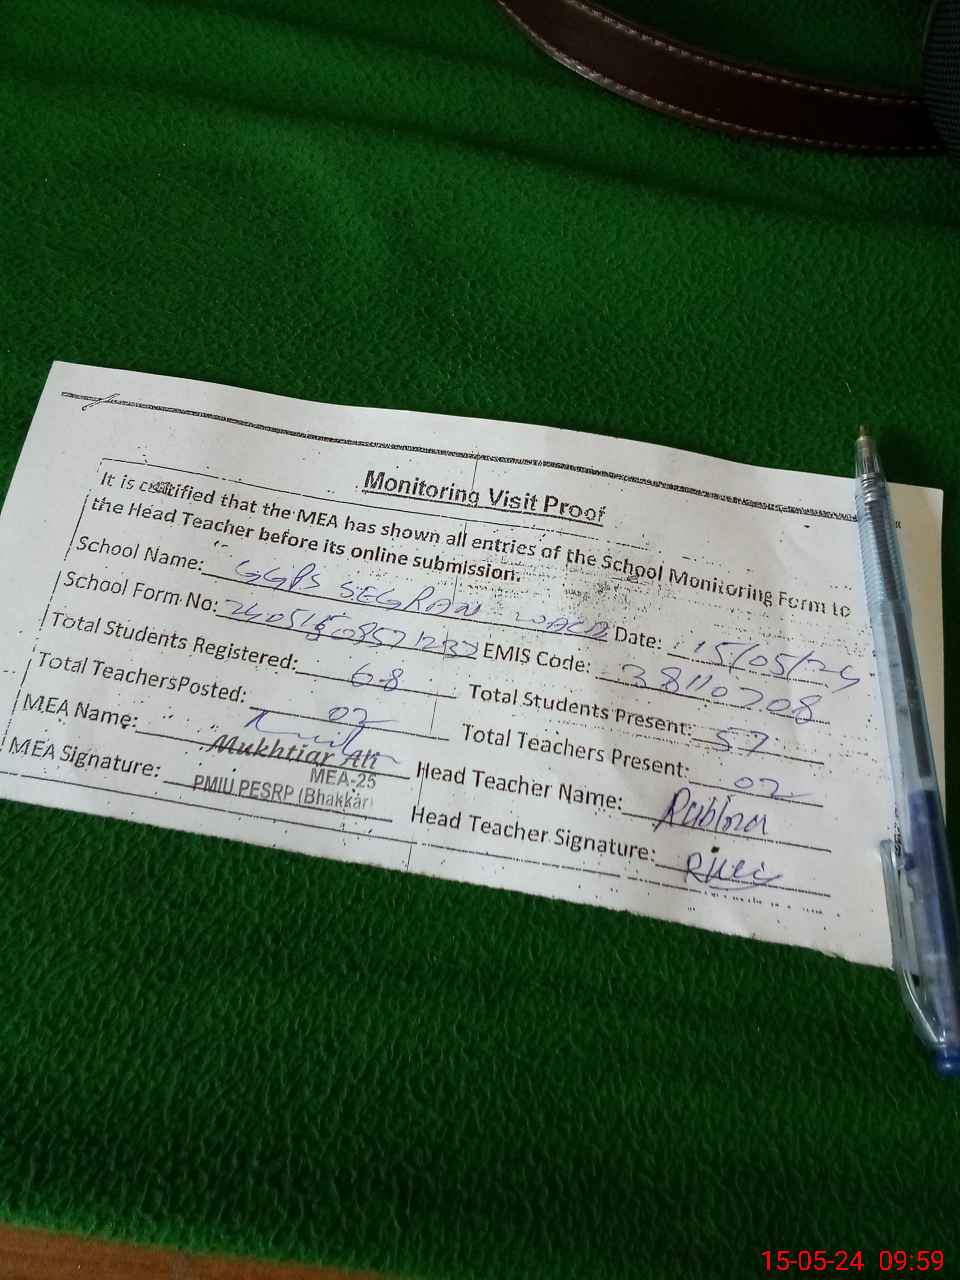 Monitoring Visit Proof
It is certified that the MEA has shown all entries of the School Monitoring Form to
the Head Teacher before its online submission.
School Name: GGPS SEGRAN Date: 15/05/24
School Form No: EMIS Code: 38110208
Total Students Registered: 68 Total Students Present: 57
Total TeachersPosted: 02 Total Teachers Present: 02
MEA Name: Mukhtiar Ali Head Teacher Name: Rubina
MEA-25
MEA Signature: PMIU PESRP (Bhakkar) Head Teacher Signature:
15-05-24 09:59